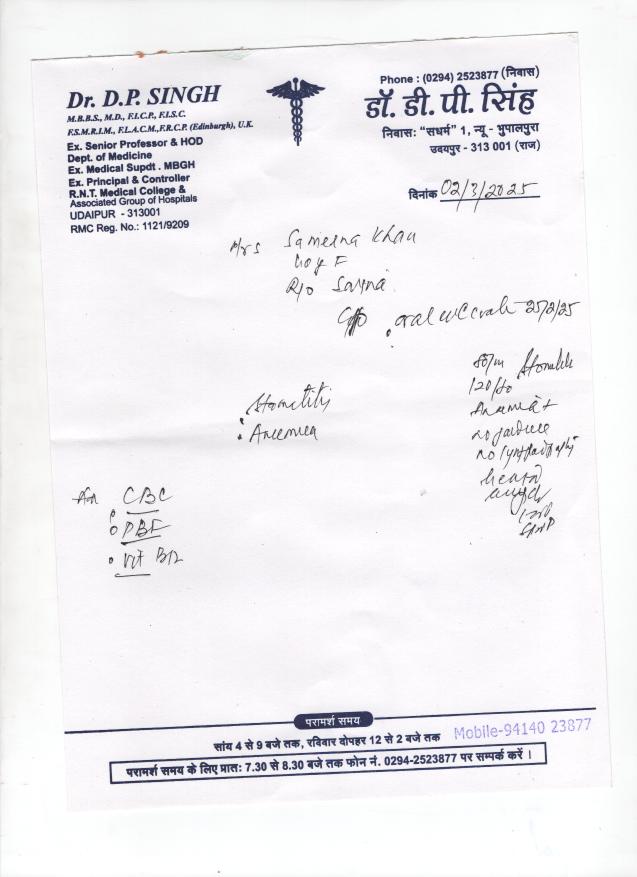 Dr. D.P. SINGH
M.B.B.S., M.D., F.I.C.P., F.I.S.C.
F.S.M.R.I.M., F.L.A.C.M., F.R.C.P. (Edinburgh), U.K.
Ex. Senior Professor & HOD
Dept. of Medicine
Ex. Medical Supdt . MBGH
Ex. Principal & Controller
R.N.T. Medical College &
Associated Group of Hospitals
UDAIPUR - 313001
RMC Reg. No.: 1121/9209
Phone : (0294) 2523877 (निवास)
डॉ. डी. पी. सिंह
निवास: "सधर्म" 1, न्यू - भुपालपुरा
उदयपुर - 313 001 (राज)
दिनांक 02/3/2025
Mrs Sameena Khan
F
R/o
oral 25/2/25
Stomatitis
Anaemia
80/m
Anaemia +
no
no
CBC
PBF
Vit B12
परामर्श समय
सांय 4 से 9 बजे तक, रविवार दोपहर 12 से 2 बजे तक
Mobile-94140 23877
परामर्श समय के लिए प्रात: 7.30 से 8.30 बजे तक फोन नं. 0294-2523877 पर सम्पर्क करें ।